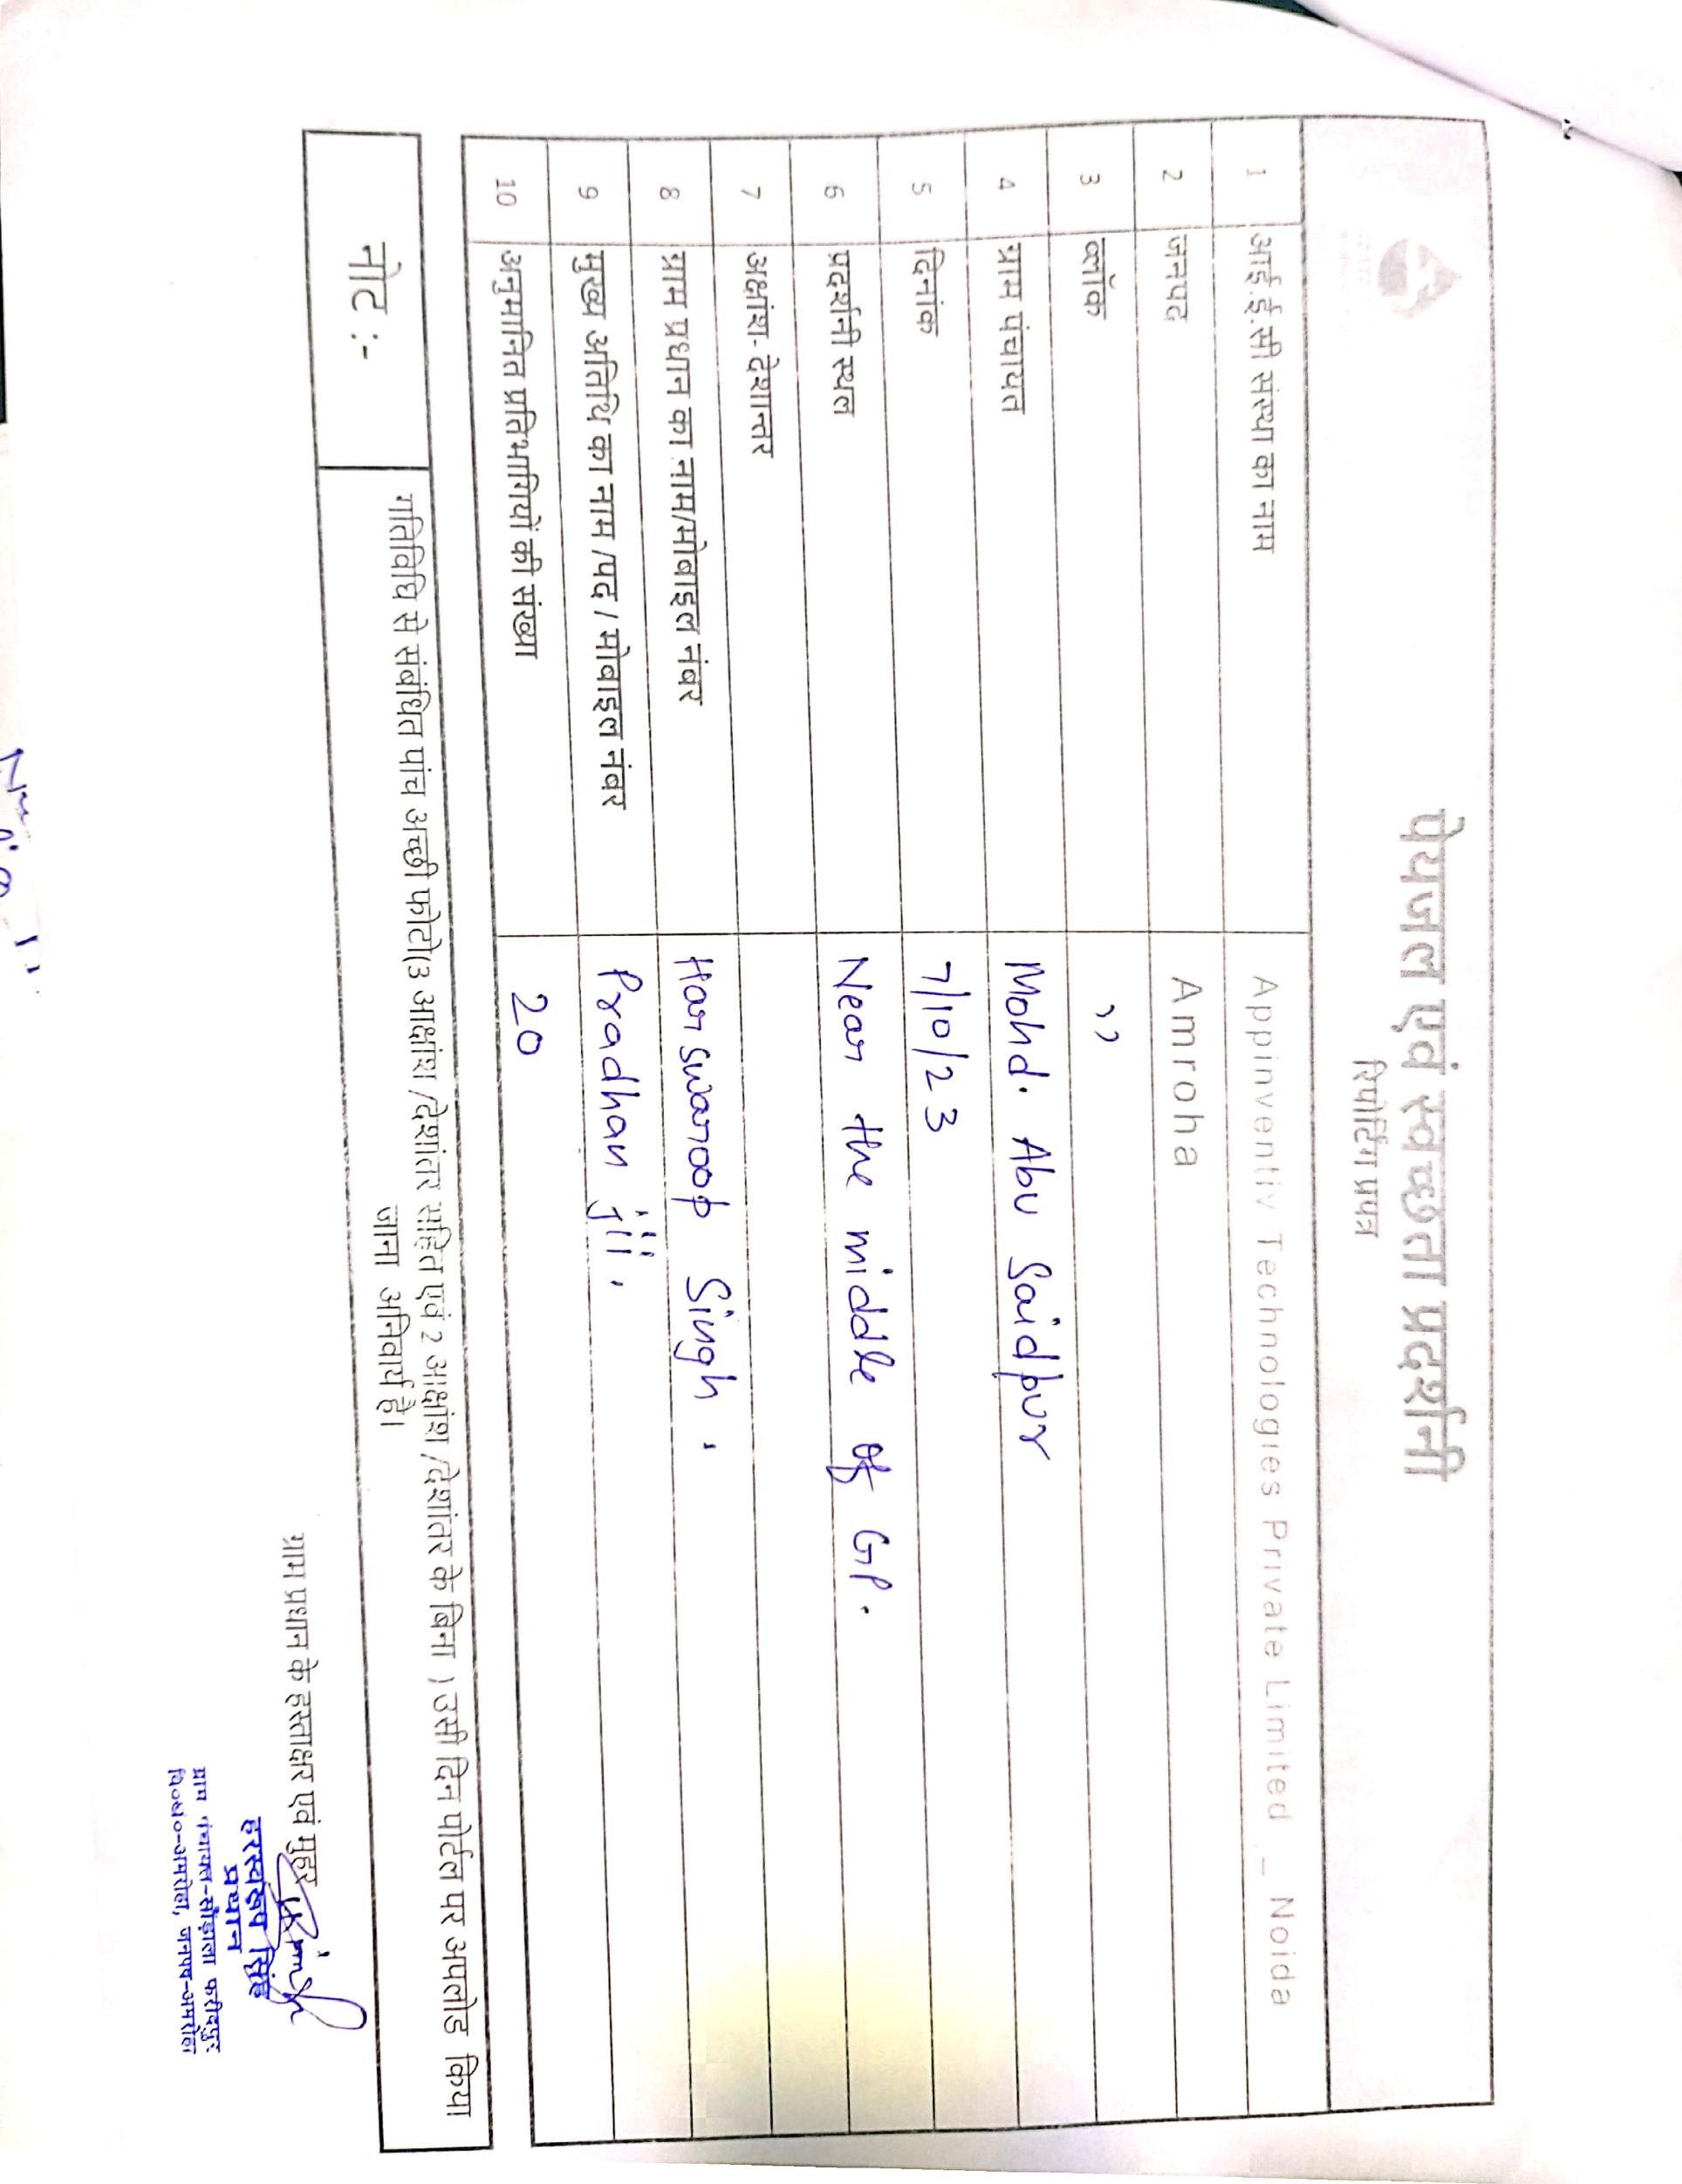 पेयजल एवं स्वच्छता प्रदर्शनी
रिपोर्टिंग प्रपत्र
1 आई.ई.सी संस्था का नाम Appinventiv Technologies Private Limited _ Noida
2 जनपद Amroha
3 ब्लॉक ,,
4 ग्राम पंचायत Mohd. Abu Saidpur
5 दिनांक 7/10/23
6 प्रदर्शनी स्थल Near the middle of GP.
7 अक्षांश- देशान्तर
8 ग्राम प्रधान का नाम/मोबाइल नंबर Harswaroop Singh.
9 मुख्य अतिथि का नाम /पद / मोबाइल नंबर Pradhan jii.
10 अनुमानित प्रतिभागियों की संख्या 20
नोट :-
गतिविधि से संबंधित पांच अच्छी फोटो(3 आक्षांश /देशांतर सहित एवं 2 आक्षांश /देशांतर के बिना ) उसी दिन पोर्टल पर अपलोड किया
जाना अनिवार्य है।
ग्राम प्रधान के हस्ताक्षर एवं मुहर
हरस्वरूप सिंह
प्रधान
ग्राम पंचायत-सौंहाला फरीदपुर
वि०खं०-अमरोहा, जनपद-अमरोहा